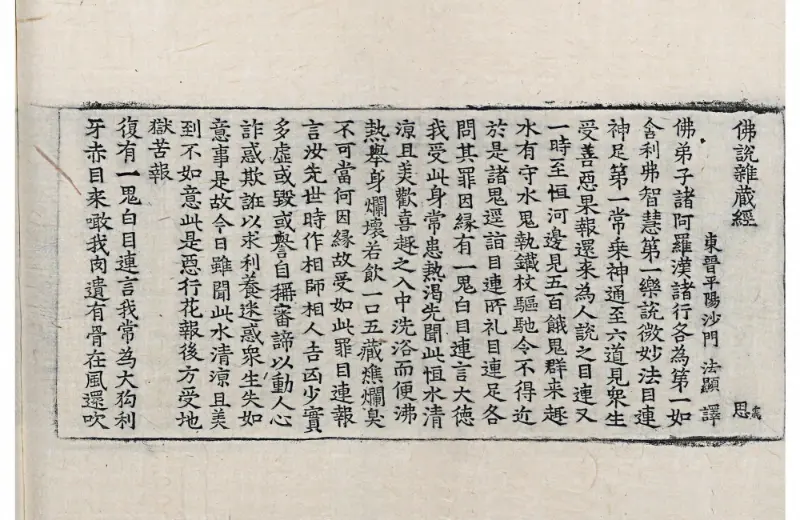 佛說雜藏經
思
東晉平陽沙門 法顯 譯
佛弟子諸阿羅漢諸行各為第一如
舍利弗智慧第一樂說微妙法目連
神足第一常乘神通至六道見衆生
受善惡果報還來為人說之目連又
一時至恒河邊見五百餓鬼群來趣
水有守水鬼執鐵杖驅馳令不得近
於是諸鬼逕詣目連所礼目連足各
問其罪因緣有一鬼白目連言大德
我受此身常患熱渴先聞此恒水清
涼且美歡喜趣之入中洗浴而便沸
熱舉身爛壞若飲一口五藏燋爛臭
不可當何因緣故受如此罪目連報
言汝先世時作相師相人吉凶少實
多虛或毀或譽自稱審諦以動人心
詐惑欺誑以求利養迷惑衆生失如
意事是故今日雖聞此水清涼且美
到不如意此是惡行花報後方受地
獄苦報
復有一鬼白目連言我常為大狗利
牙赤目來噉我肉遺有骨在風還吹